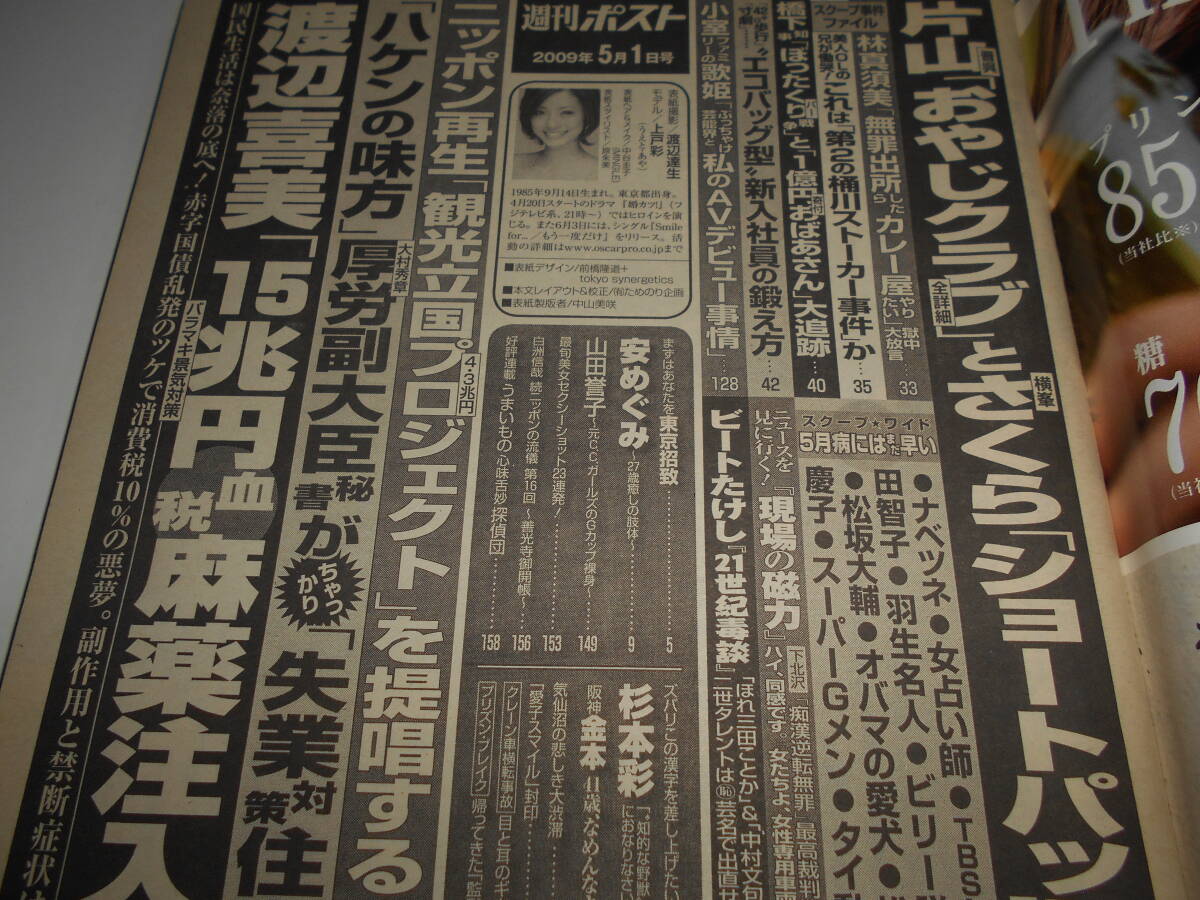 週刊ポスト
2009年5月1日号
片山「おやじクラブ」とさくら「ショートパッ
無罪
全詳細
横峯
スクープ事件ファイル
林真須美「無罪出所したらカレー屋やりたい」獄中大放言
33
美人OLの兄が慟哭!
これは「第2の桶川ストーカー事件」か
35
橋下知事「ぼったくりバー戦争」と「1億円寄付おばあさん」大追跡
40
“エコバッグ型”新入社員の鍛え方
42
小室ファミリーの歌姫「ぶっちゃけ芸能界と私のAVデビュー事情」
128
スクープ★ワイド
5月病にはまだ早い
●ナベツネ●女占い師●TBS
田智子●羽生名人●ビリー
●松坂大輔●オバマの愛犬●
慶子●スーパーGメン●タイ
ニュースを見に行く!「現場の磁力」
下北沢
痴漢逆転無罪
最高裁判
ハイ、同感です。女たちよ、女性専用車
ビートたけし『21世紀毒談』
「ほれ三田ことか」&「中村文句
二世タレントは恥芸名で出直せ
表紙撮影/渡辺達生
モデル/上戸彩
(うえとあや)
表紙ヘア&メイク/中谷圭子
(AVGVST)
1985年9月14日生まれ。東京都出身。
4月20日スタートのドラマ『婚カツ!』(フ
ジテレビ系、21時〜)ではヒロインを演
じる。また6月3日には、シングル『Smile
for…/もう一度だけ』をリリース。活
動の詳細はwww.oscarpro.co.jpまで
■表紙デザイン/前橋隆道+
tokyo synergetics
■本文レイアウト&校正/(有)ためのり企画
■表紙製版者/中山美咲
まずはあなたを東京招致
5
安めぐみ〜27歳癒しの肢体〜
9
山田誉子〜元C.C.ガールズのGカップ裸身〜
149
最旬美女セクシーショット23連発!
153
白洲信哉 続ニッポンの流儀 第16回〜善光寺御開帳〜
156
好評連載 うまいもの心味舌妙探偵団
158
ズバリこの漢字を差し上げたい
杉本彩「“知的な野獣
におなりなさい
阪神金本41歳「なめんな
気仙沼の悲しき大渋滞
「愛子スマイル」封印
クレーン車横転事故
目と耳のギ
プリズン・ブレイク
帰ってきた「監
ニッポン再生「観光立国プロジェクト」を提唱する
4・3兆円
「ハケンの味方」厚労副大臣秘書がちゃっかり「失業対策住
大村秀章
渡辺喜美「15兆円血税麻薬注入
バラマキ景気対策
国民生活は奈落の底へ!赤字国債乱発のツケで消費税10%の悪夢。副作用と禁断症状は
プリン
85
(当社比※)
糖